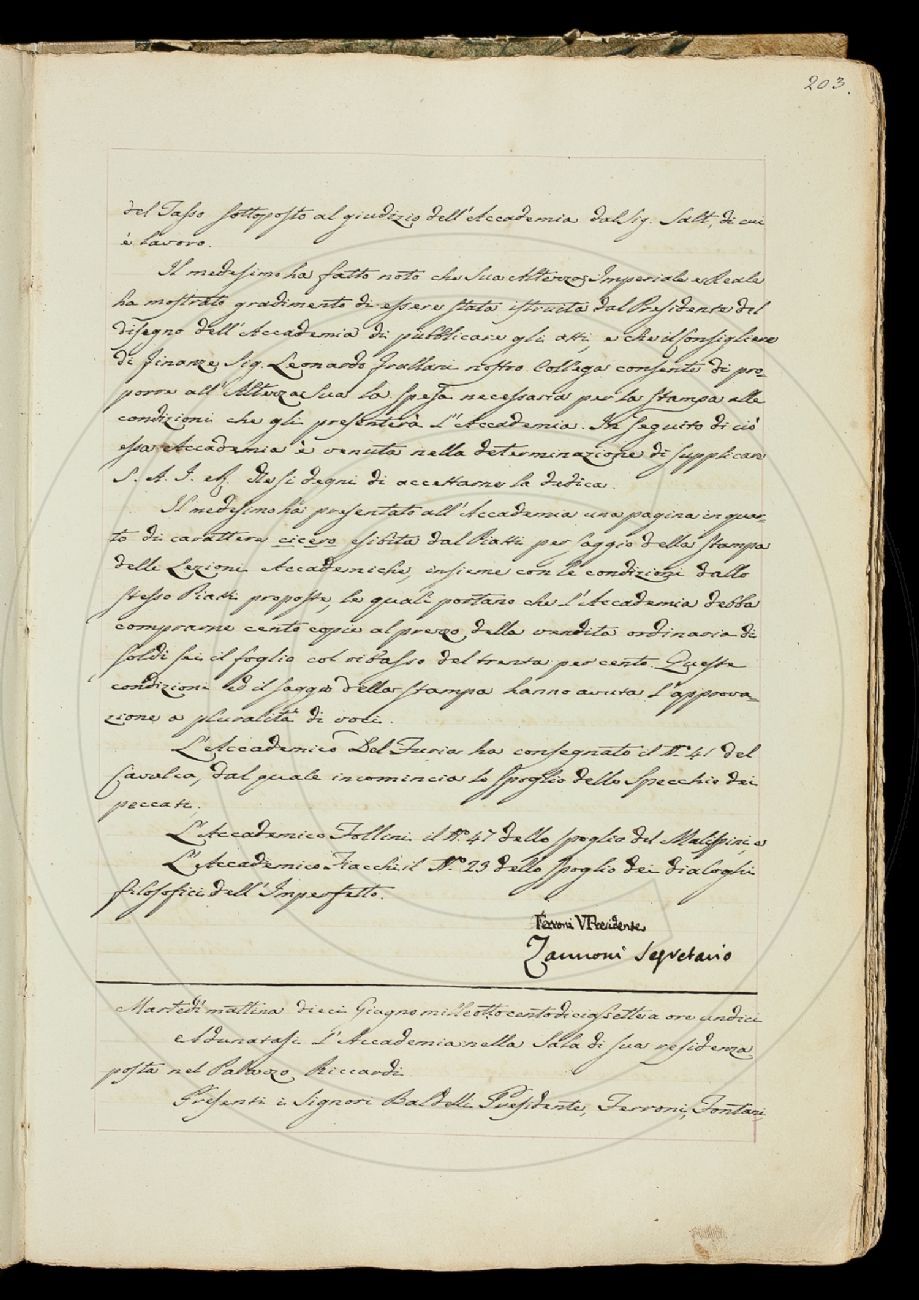 203.
del Tasso sottoposto al giudizio dell'Accademia dal Sig. Salt, di cui
è lavoro.
Il medesimo ha fatto noto che Sua Altezza Imperiale e Reale
ha mostrato gradimento di essere stata istruita dal Presidente del
disegno dell'Accademia di pubblicare gli atti, e che il Consigliere
di finanze, Sig. Leonardo Frullani nostro Collega consente di pro-
porre all'Altezza Sua la spesa necessaria per la stampa alle
condizioni che gli presenterà l'Accademia. In seguito di ciò
essa Accademia è venuta nella determinazione di supplicare
S. A. I. e R. che si degni di accettarne la dedica.
Il medesimo ha presentato all'Accademia una pagina in quar-
to di carattere cicero esibita dal Piatti per saggio della stampa
delle Lezioni Accademiche, insieme con le condizioni dallo
stesso Piatti proposte, le quali portano che l'Accademia debba
comprarne cento copie al prezzo della vendita ordinaria di
soldi sei il foglio col ribasso del trenta per cento. Queste
condizioni ed il saggio della stampa hanno avuta l'approva-
zione a pluralità di voti.
L'Accademico Del Furia ha consegnato il N.° 41 del
Cavalca, dal quale incomincia lo spoglio dello Specchio dei
peccati.
L'Accademico Follini il N.° 47 dello spoglio del Malispini, e
L'Accademico Fiacchi il N.° 23 dello spoglio dei dialoghi
filosofici dell'Imperfetto.
Ferroni V.Presidente
Zannoni Segretario
Martedì mattina dieci Giugno mille otto cento diciassette a ore undici
Adunatasi l'Accademia nella Sala di sua residenza
posta nel Palazzo Riccardi
Presenti i Signori Baldelli Presidente, Ferroni, Fontani